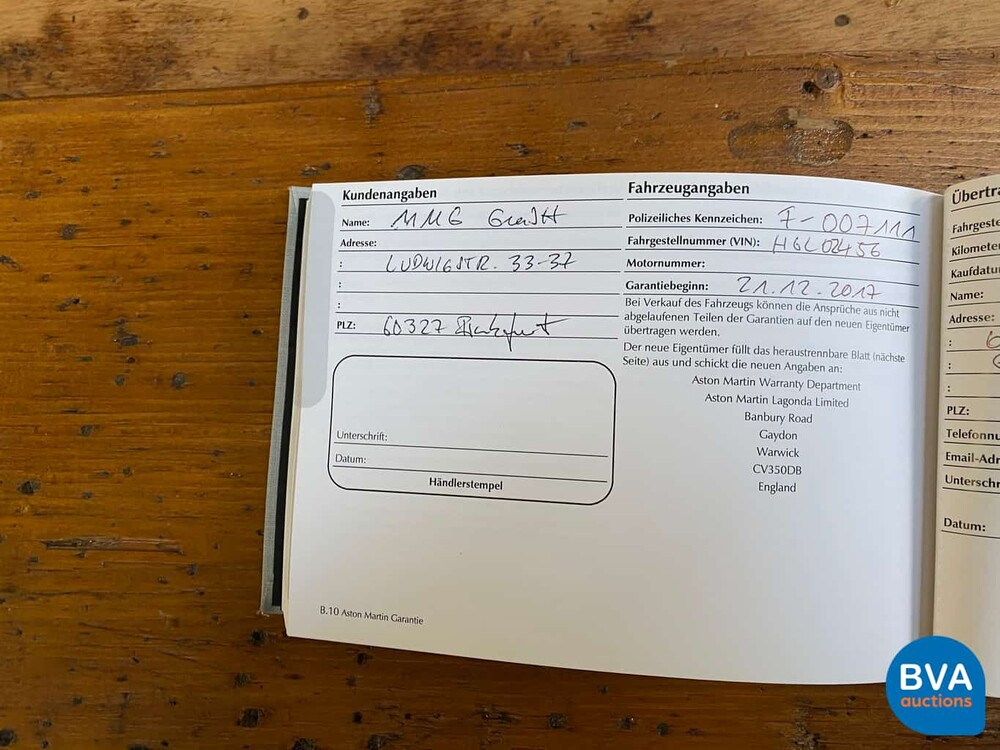 Kundenangaben
Name: MMG GmbH
Adresse:
: LUDWIGSTR. 33-37
:
:
PLZ: 60327 Frankfurt
Unterschrift:
Datum:
Händlerstempel
B.10 Aston Martin Garantie
Fahrzeugangaben
Polizeiliches Kennzeichen: F-007111
Fahrgestellnummer (VIN): HGL02456
Motornummer:
Garantiebeginn: 21.12.2017
Bei Verkauf des Fahrzeugs können die Ansprüche aus nicht
abgelaufenen Teilen der Garantien auf den neuen Eigentümer
übertragen werden.
Der neue Eigentümer füllt das heraustrennbare Blatt (nächste
Seite) aus und schickt die neuen Angaben an:
Aston Martin Warranty Department
Aston Martin Lagonda Limited
Banbury Road
Gaydon
Warwick
CV350DB
England
Übertra
Fahrgeste
Kilomete
Kaufdatu
Name:
Adresse:
:
:
:
PLZ:
Telefonnu
Email-Adr
Unterschr
Datum:
BVA
auctions